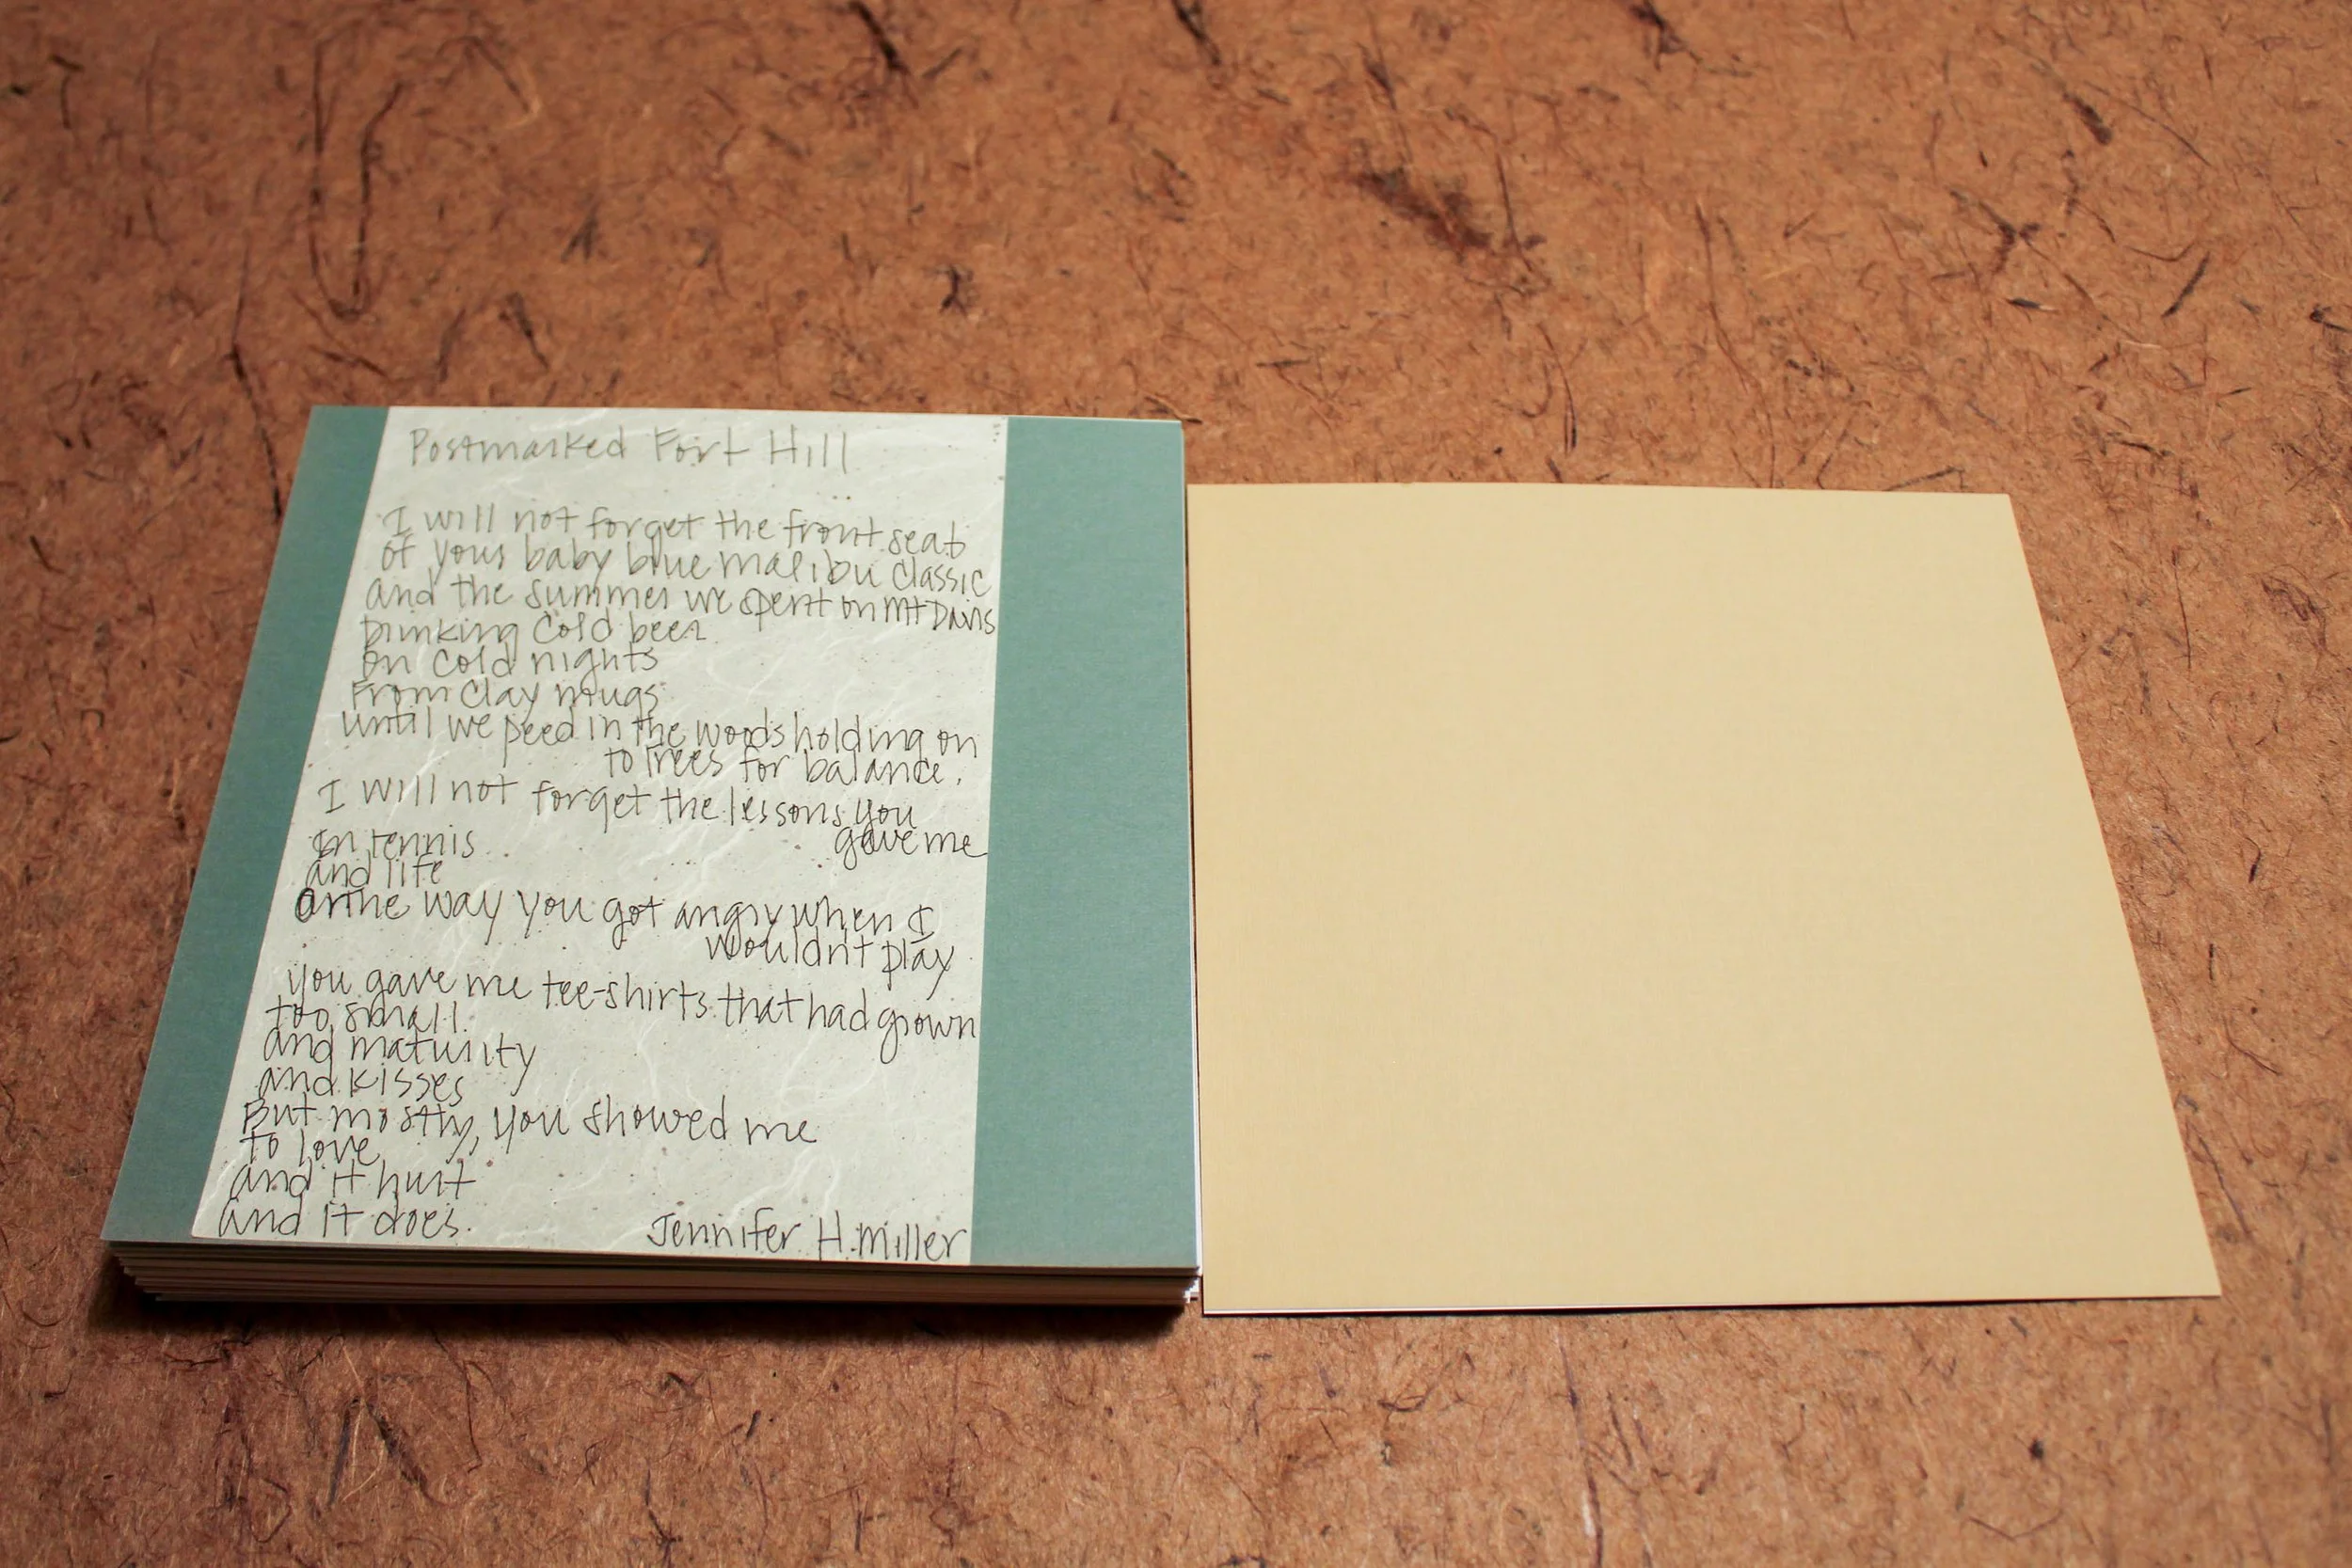 Postmarked Fort Hill
I will not forget the front seat
of your baby blue malibu classic
and the summer we spent on Mt Davis
Drinking cold beer
on cold nights
From clay mugs
until we peed in the woods holding on
to trees for balance.
I will not forget the lessons you
gave me
In tennis
and life
Or the way you got angry when I
wouldn't play
you gave me tee-shirts that had grown
too small
and maturity
and kisses
But mostly, you showed me
to love
and it hurt
and it does.
Jennifer H. Miller